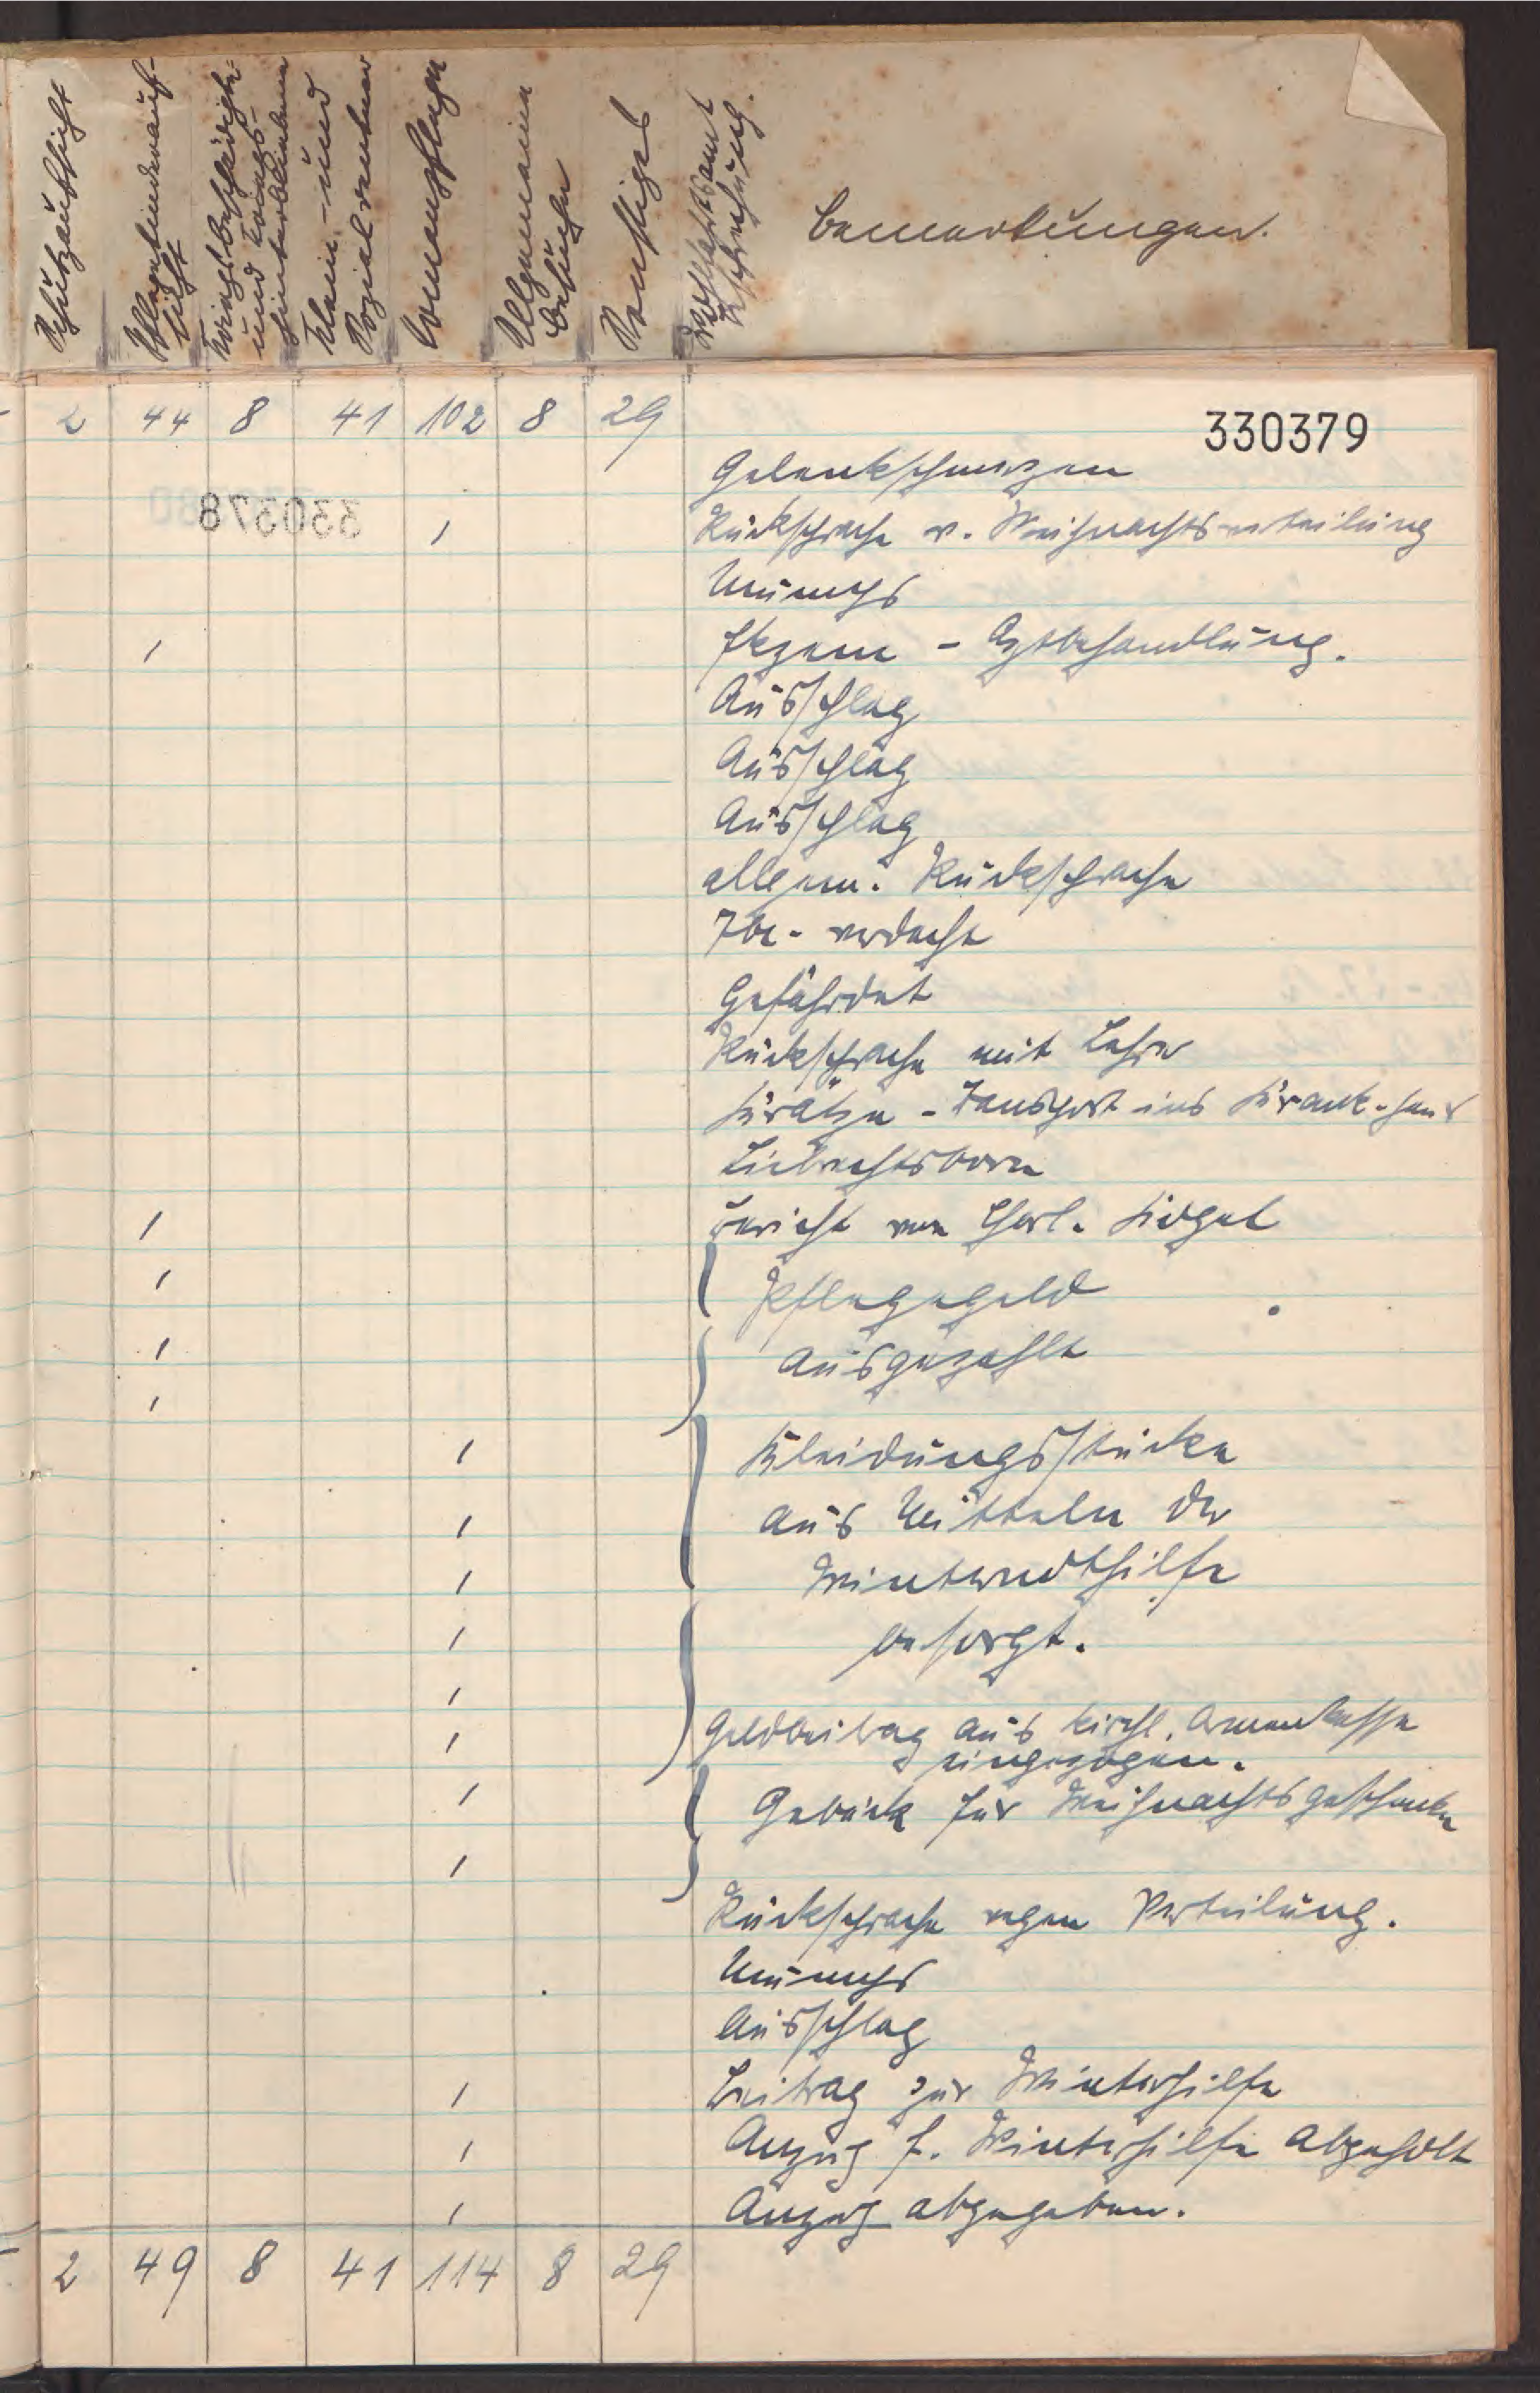 Schutzaufsicht
Pflegekinderauf-
sicht
Kriegsbeschädigte-
und Kriegs-
hinterbliebene
Klein- und
Sozialrentner
Armenpflege
Allgemeine
Besuche
Sonstiges
Wohlfahrtsamt
Bemerkungen.
2 44 8 41 102 8 29
330379
Gelenkschmerzen
330378
1 Rücksprache w. Weihnachtsverteilung
Mumps
1 Ekzem - Arztbehandlung.
Ausschlag
Ausschlag
Ausschlag
allgem. Rücksprache
Tbc- verdacht
Gefährdet
Rücksprache mit Lehrer
Krätze - Transport ins Krank.haus
1 Bericht von
1 Pflegegeld
1 ausgezahlt
1
1 Kleidungsstücke
1 aus Mitteln der
1 Winternothilfe
1 besorgt.
1
1 Geldbeitrag aus kirchl. Armenkasse
eingezogen.
1 Gebäck für Weihnachtsgeschenke
1
Rücksprache wegen Verteilung.
Mumps
Ausschlag
1 Beitrag zur Winterhilfe
1 Anzug f. Winterhilfe abgeholt
1 Anzug abgegeben.
2 49 8 41 114 8 29